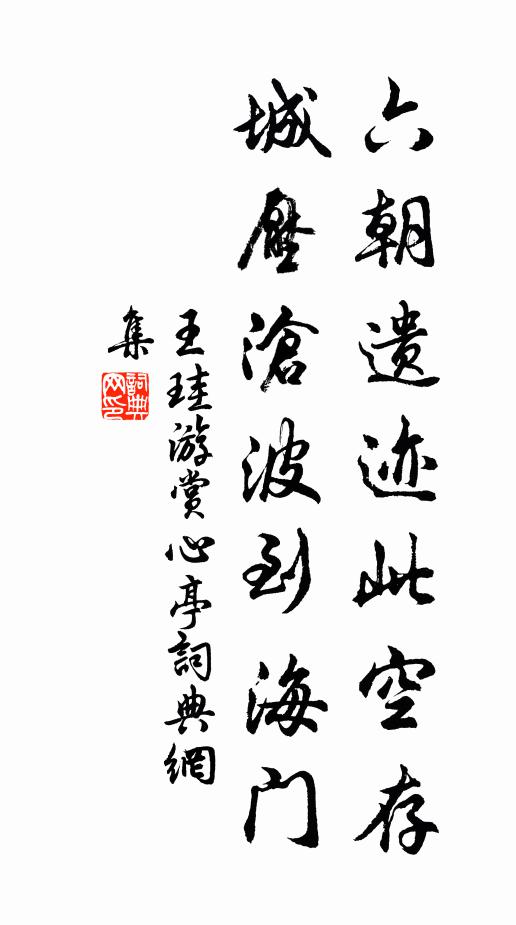 六朝遗迹此空存
城壓滄波到海门
王珪游赏心亭詞典網
集
詞典
网印